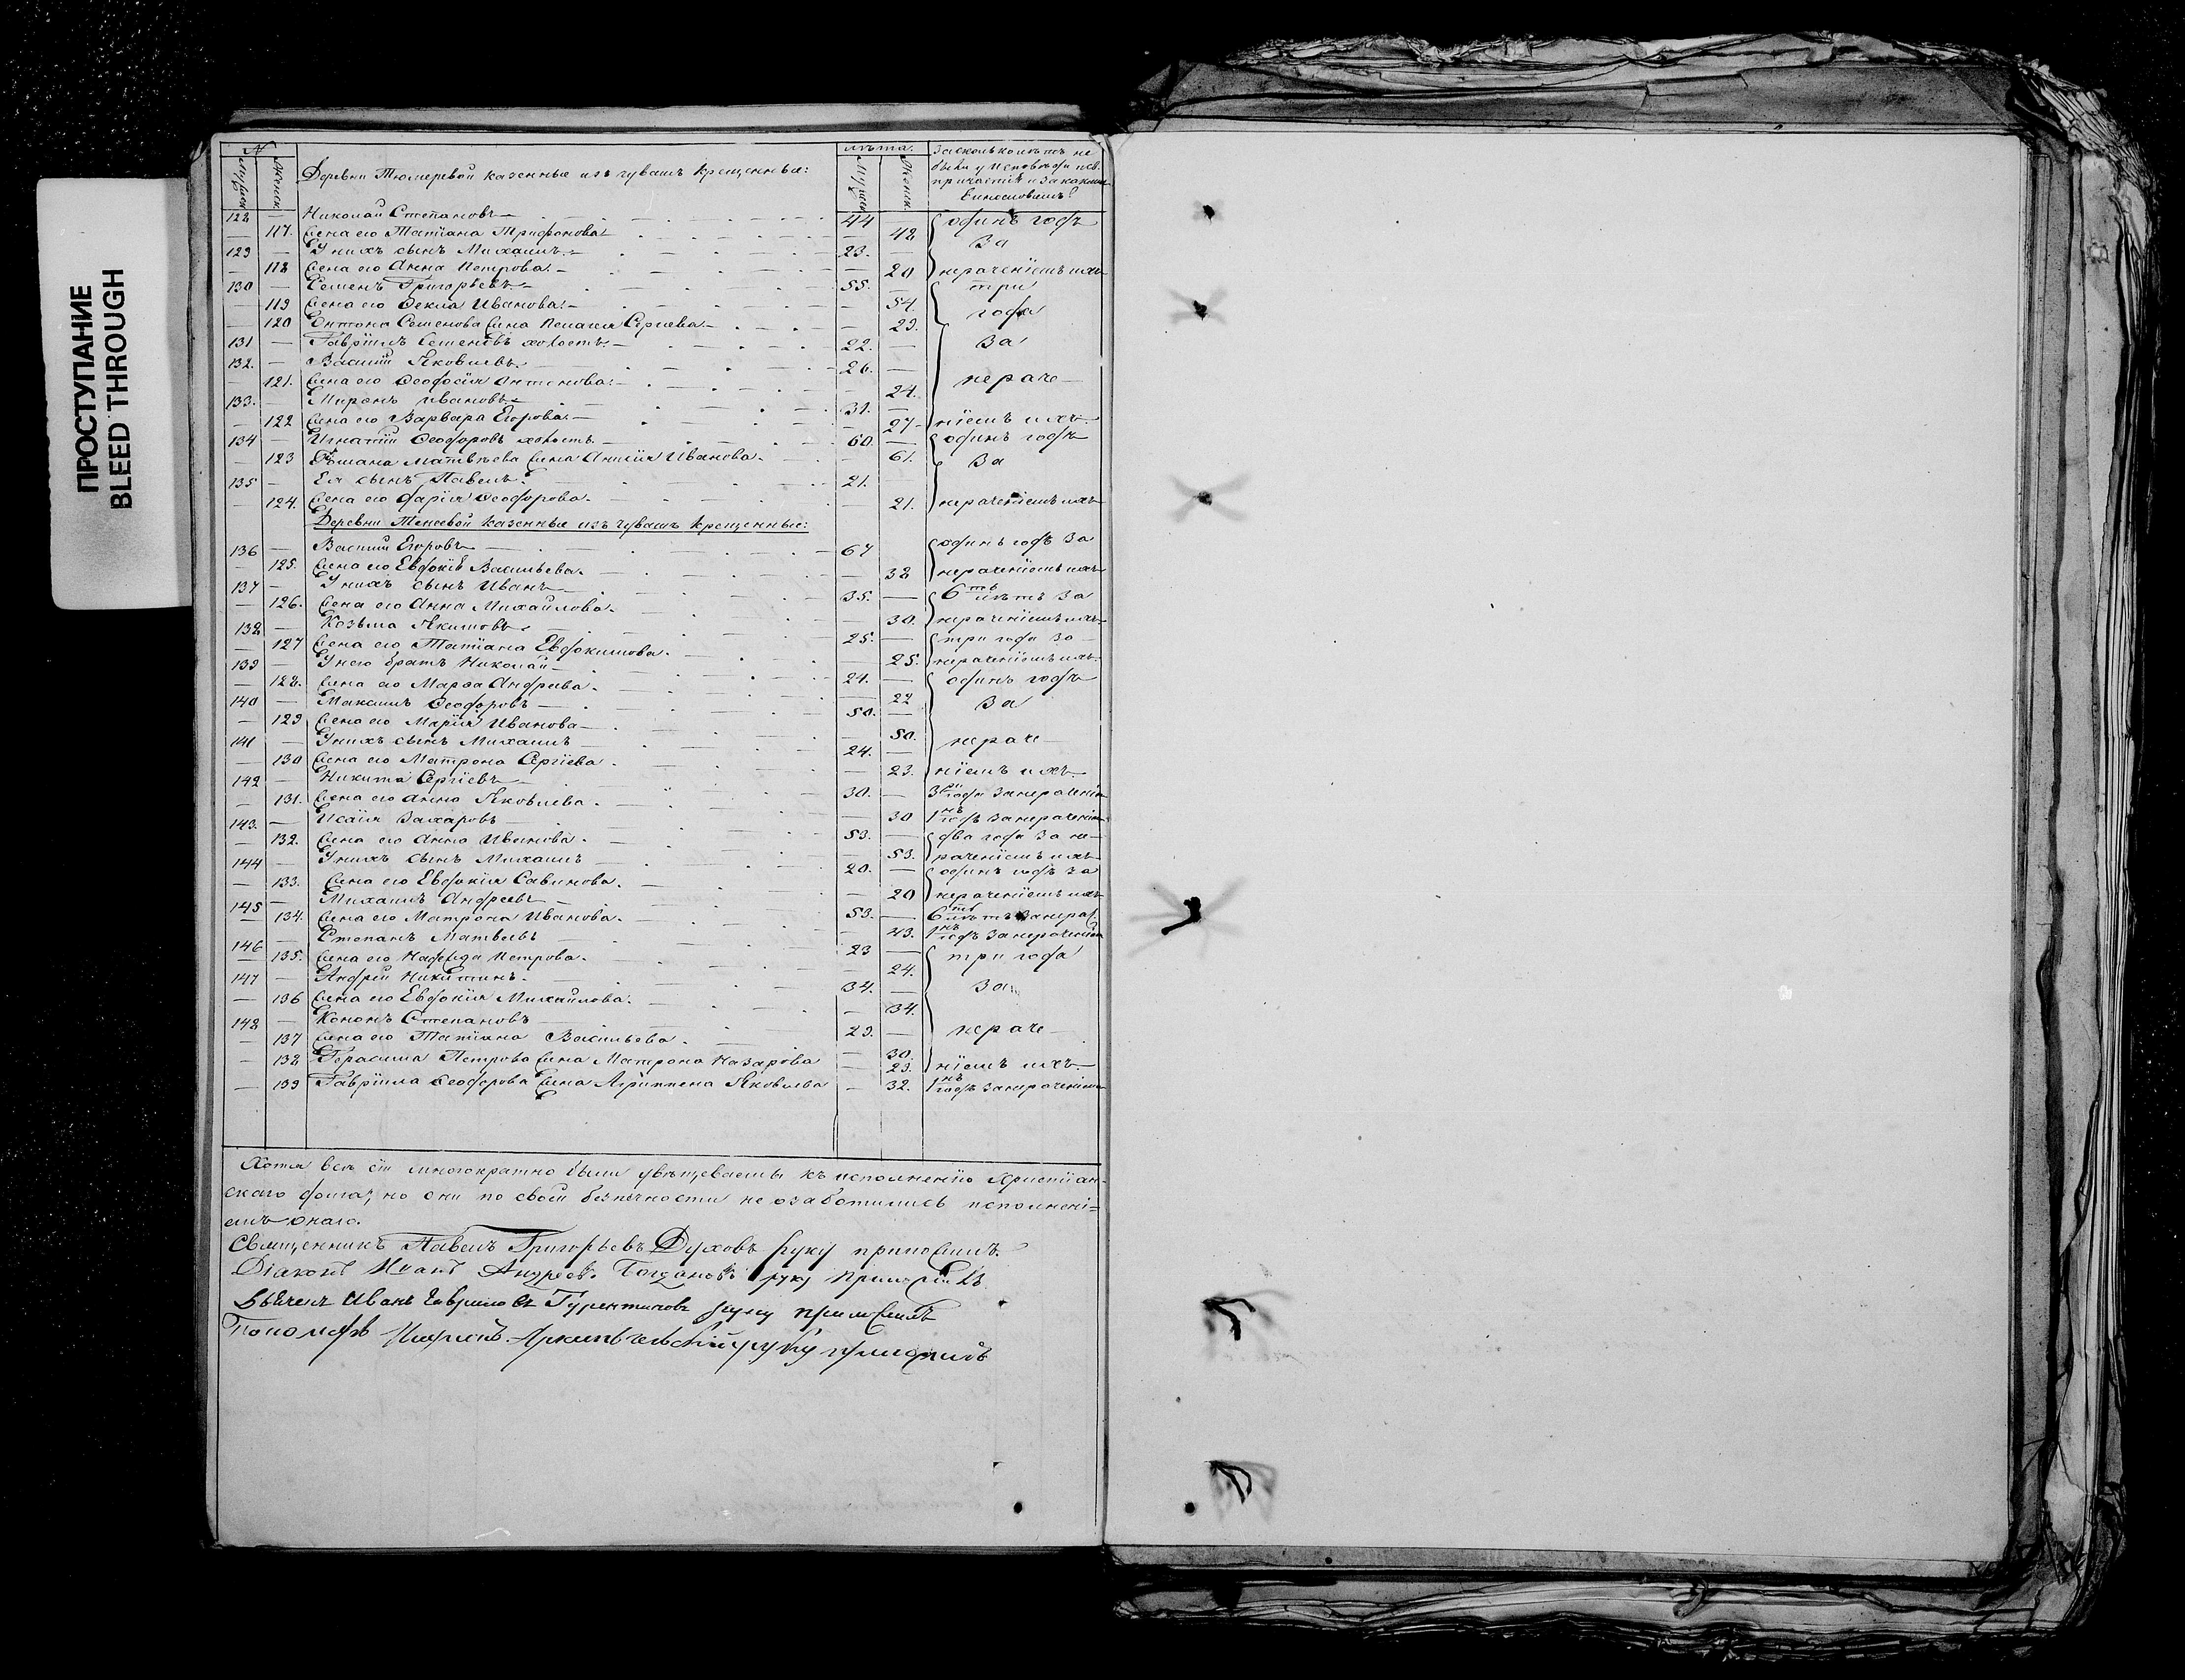 ПРОСТУПАНИЕ
BLEED THROUGH
№ лѣта.
Мужск Женск Деревни Тюмеревой казенные изъ чувашъ крещенные: Мужск Женск За сколько лѣтъ не
были у исповѣди и св.
причастія и за какимъ
128 — Николай Степановъ — 44 — одинъ годъ
— 117. Жена его Татіана Трифонова — 42 за
129 — У нихъ сынъ Михаилъ — 23. —
— 118 Жена его Анна Петрова — 20 нераченіемъ ихъ
130 — Семенъ Григорьевъ — 55. — три
— 119 Жена его Фекла Иванова — 54. года
— 120 Антона Семенова жена Пелагея Сергіева — 29.
131 — Гавріилъ Семеновъ холостъ — 22. — за
132. — Василій Яковлевъ — 26. —
— 121. Жена его Ѳеодосія Антонова — 24. нераче—
133. — Миронъ Ивановъ — 31. —
— 122 Жена его Варвара Егорова — 27 ніемъ ихъ
134 — Игнатій Ѳеодоровъ холостъ — 60. — одинъ годъ
— 123 Матвѣева жена Анисія Иванова — 61. за
135 — Ея сынъ Павелъ. — 21. —
— 124. Жена его Дарія Ѳеодорова. — 21. нераченіемъ ихъ
Деревни Тенеевой казенные изъ чувашъ крещенные:
136 — Василій Егоровъ — 67 одинъ годъ за
— 125. Жена его Евдокія Васильева. — 32 нераченіемъ ихъ
137 — У нихъ сынъ Иванъ — 35. — 6ть лѣтъ за
— 126. Жена его Анна Михайлова — 30. нераченіемъ ихъ
138 — Козьма Якимовъ — 25. — три года за
— 127 Жена его Татіана Евдокимова. — 25. нераченіемъ ихъ
139 — У него братъ Николай — 21. — одинъ годъ
— 128. Жена его Марѳа Андреева. — 22 за
140 — Максимъ Ѳеодоровъ — 50. —
— 129 Жена его Марія Иванова — 50. нераче
141 — У нихъ сынъ Михаилъ — 24. —
— 130 Жена его Матрона Сергіева. — 23. ніемъ ихъ
142 — Никита Сергіевъ — 30. — 3ри года за нераченіе
— 131. Жена его Анна Яковлева. — 30 1нъ годъ за нераченіе
143. — Исаія Захаровъ — 53. — два года за не—
— 132. Жена его Анна Иванова. — 53. раченіемъ ихъ
144 — У нихъ сынъ Михаилъ — 20. — одинъ годъ за
— 133. Жена его Евдокія Савинова. — 20 нераченіемъ ихъ
145 — Михаилъ Андреевъ — 53. — 6ть лѣтъ за нерач.
— 134. Жена его Матрона Иванова. — 43. 1нъ годъ за нераченіем
146 — Степанъ Матвеевъ — 23 — три года
— 135. Жена его Надежда Петрова. — 24.
147 — Андрей Никитинъ. — 34. — за
— 136 Жена его Евдокія Михайлова. — 34.
148 — Кононъ Степановъ — 29. — нераче—
— 137 Жена его Татіана Васильева. — 30.
— 138 Герасима Петрова жена Матрона Назарова — 29. ніемъ ихъ—
— 139 Гавріила Ѳеодорова жена Агриппена Яковлева — 32. 1нъ годъ за нераченіем
Хотя всѣ сіи многократно были увѣщеваемы къ исполненію Христіан-
скаго долга, но они по своей безпечности не озаботились исполнені=
емъ онаго.
Священникъ Павелъ Григорьевъ Духовъ руку приложилъ.
Діаконъ Иванъ Андреевъ Богдановъ руку приложилъ
Дьячекъ Иванъ Гавриловъ руку приложилъ
Пономарь руку приложилъ